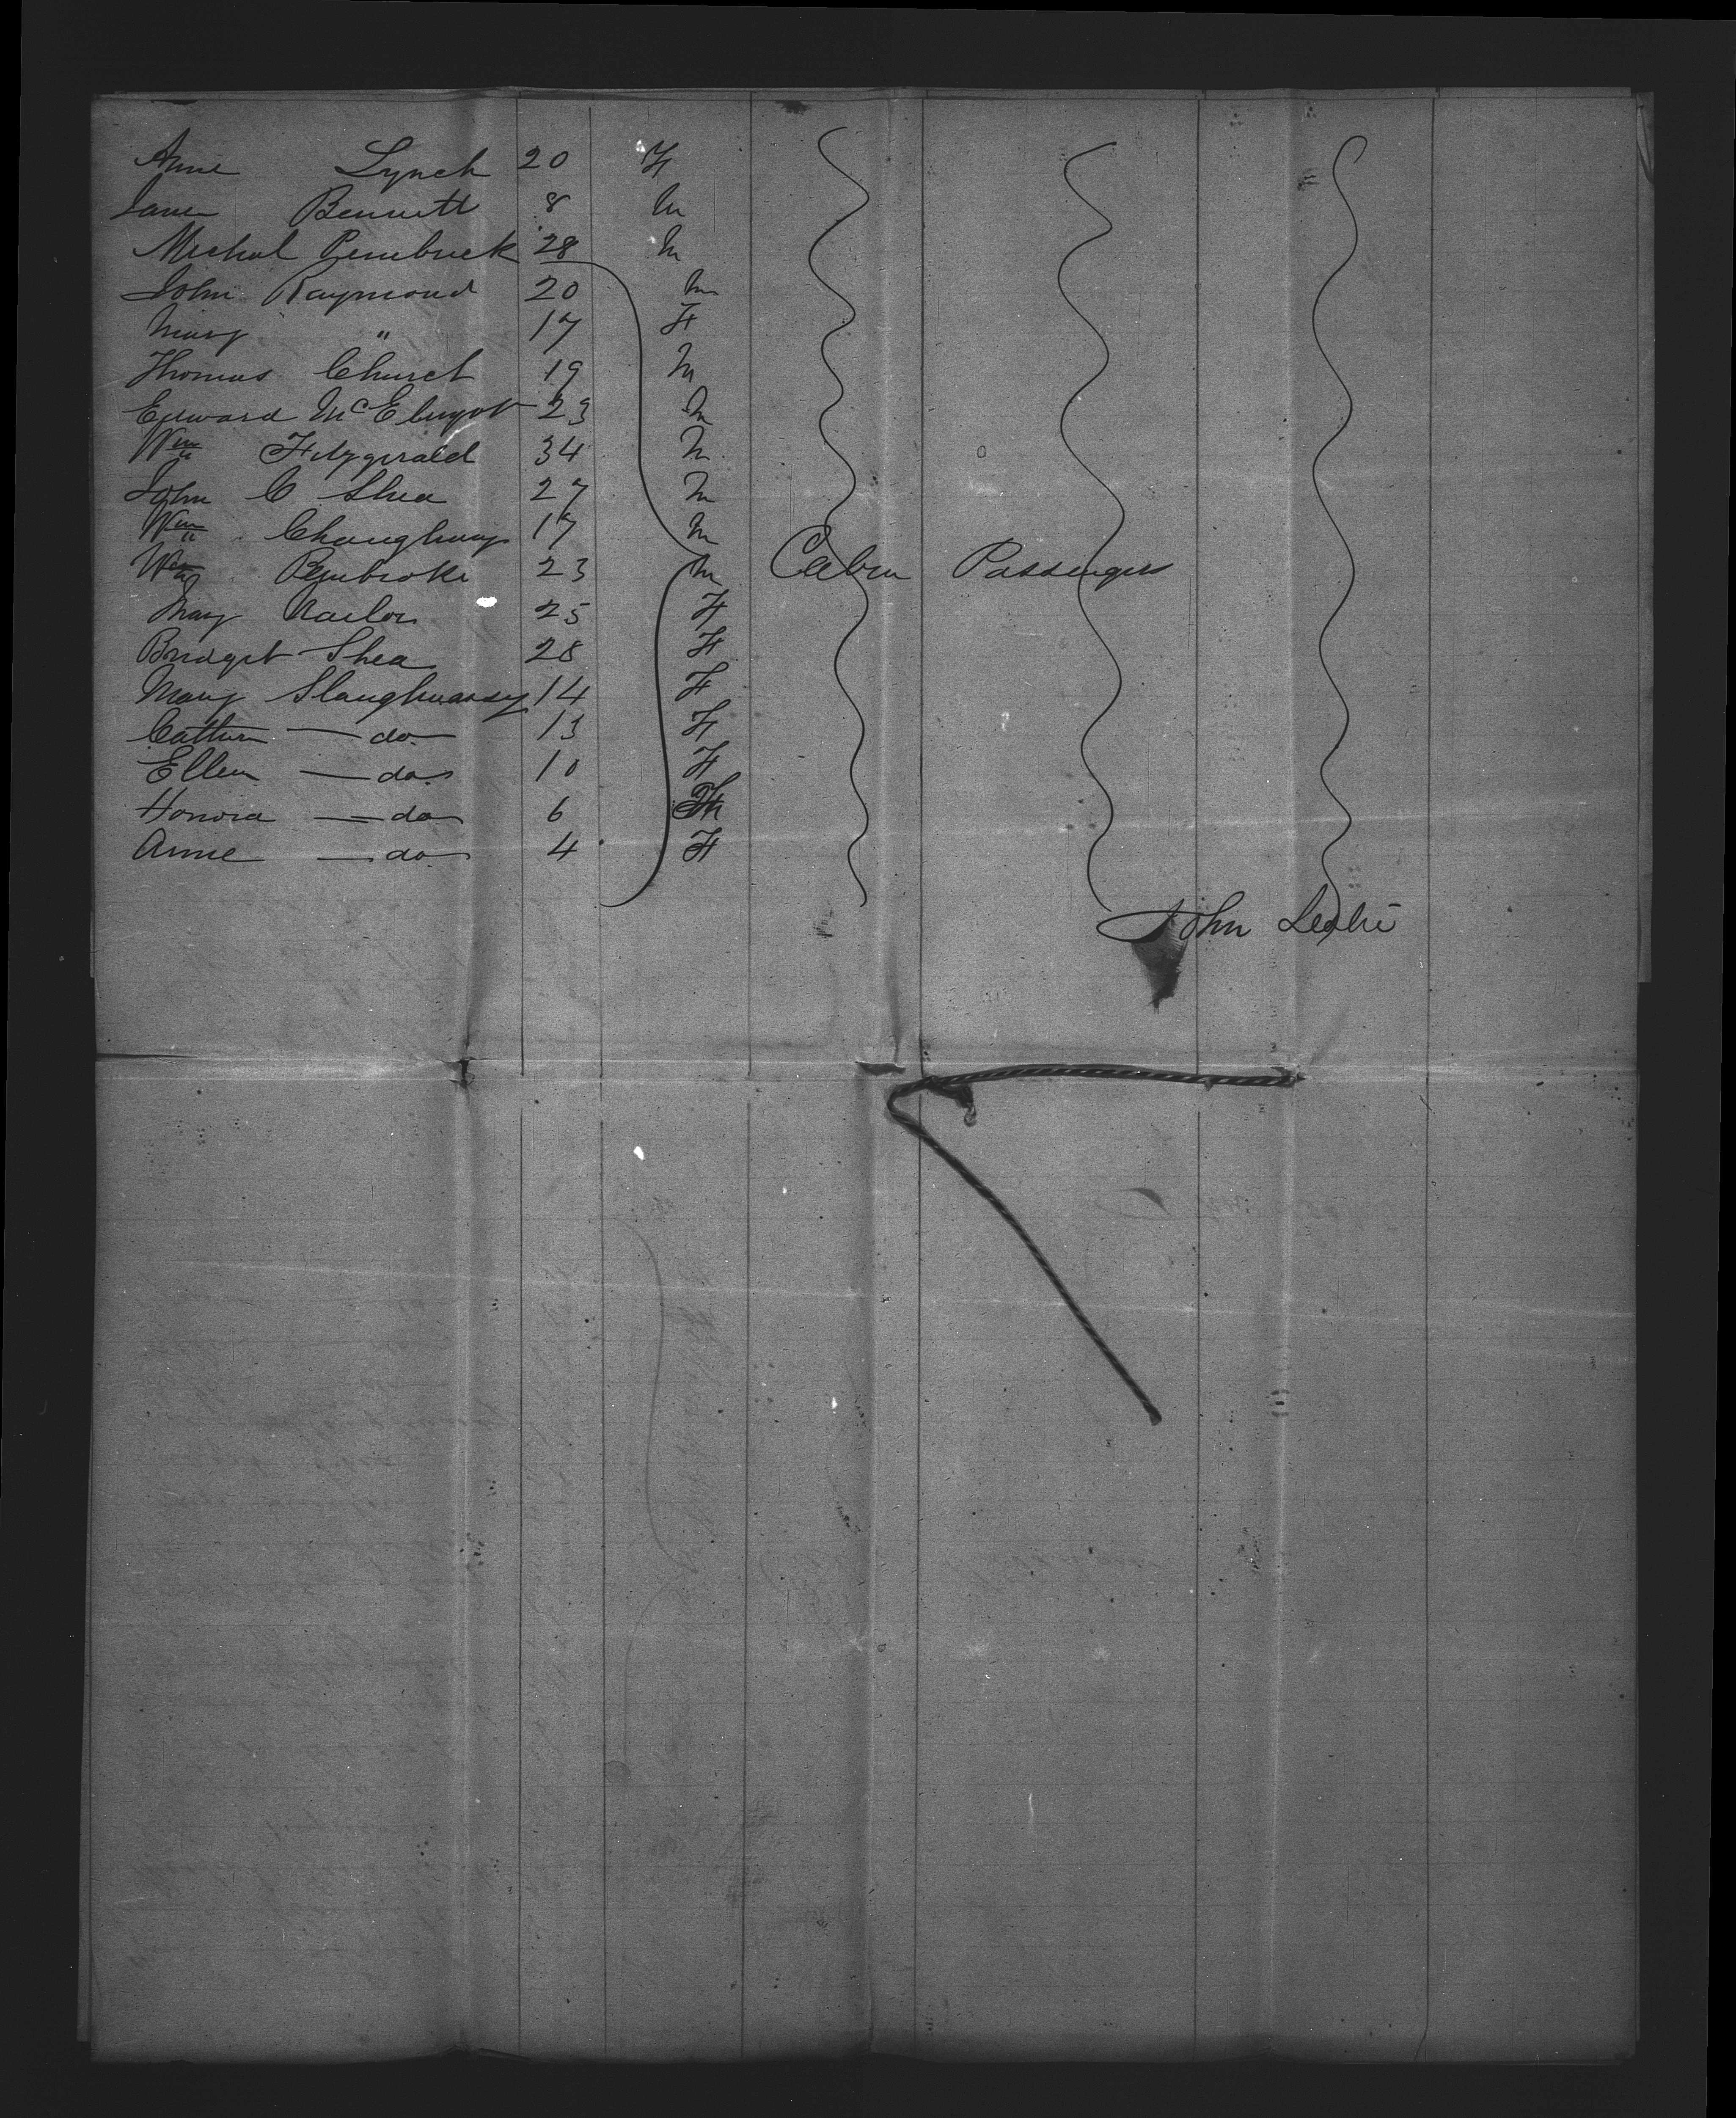 Anne Lynch 20 F
James Bennett 8 M
Michal Pembrick 28 M
John Raymond 20 M
Mary " 17 F
Thomas Church 19 M
Edward 23 M
Wm Fitzgerald 34 M
John C Shea 27 M
Wm 17 M
Wm Pembroke 23 M Cabin Passengers
Mary 25 F
Bridget Shea 28 F
Mary 14 F
do 13 F
Ellen do 10 F
Honora do 6
Anne do 4 F
John Leslie